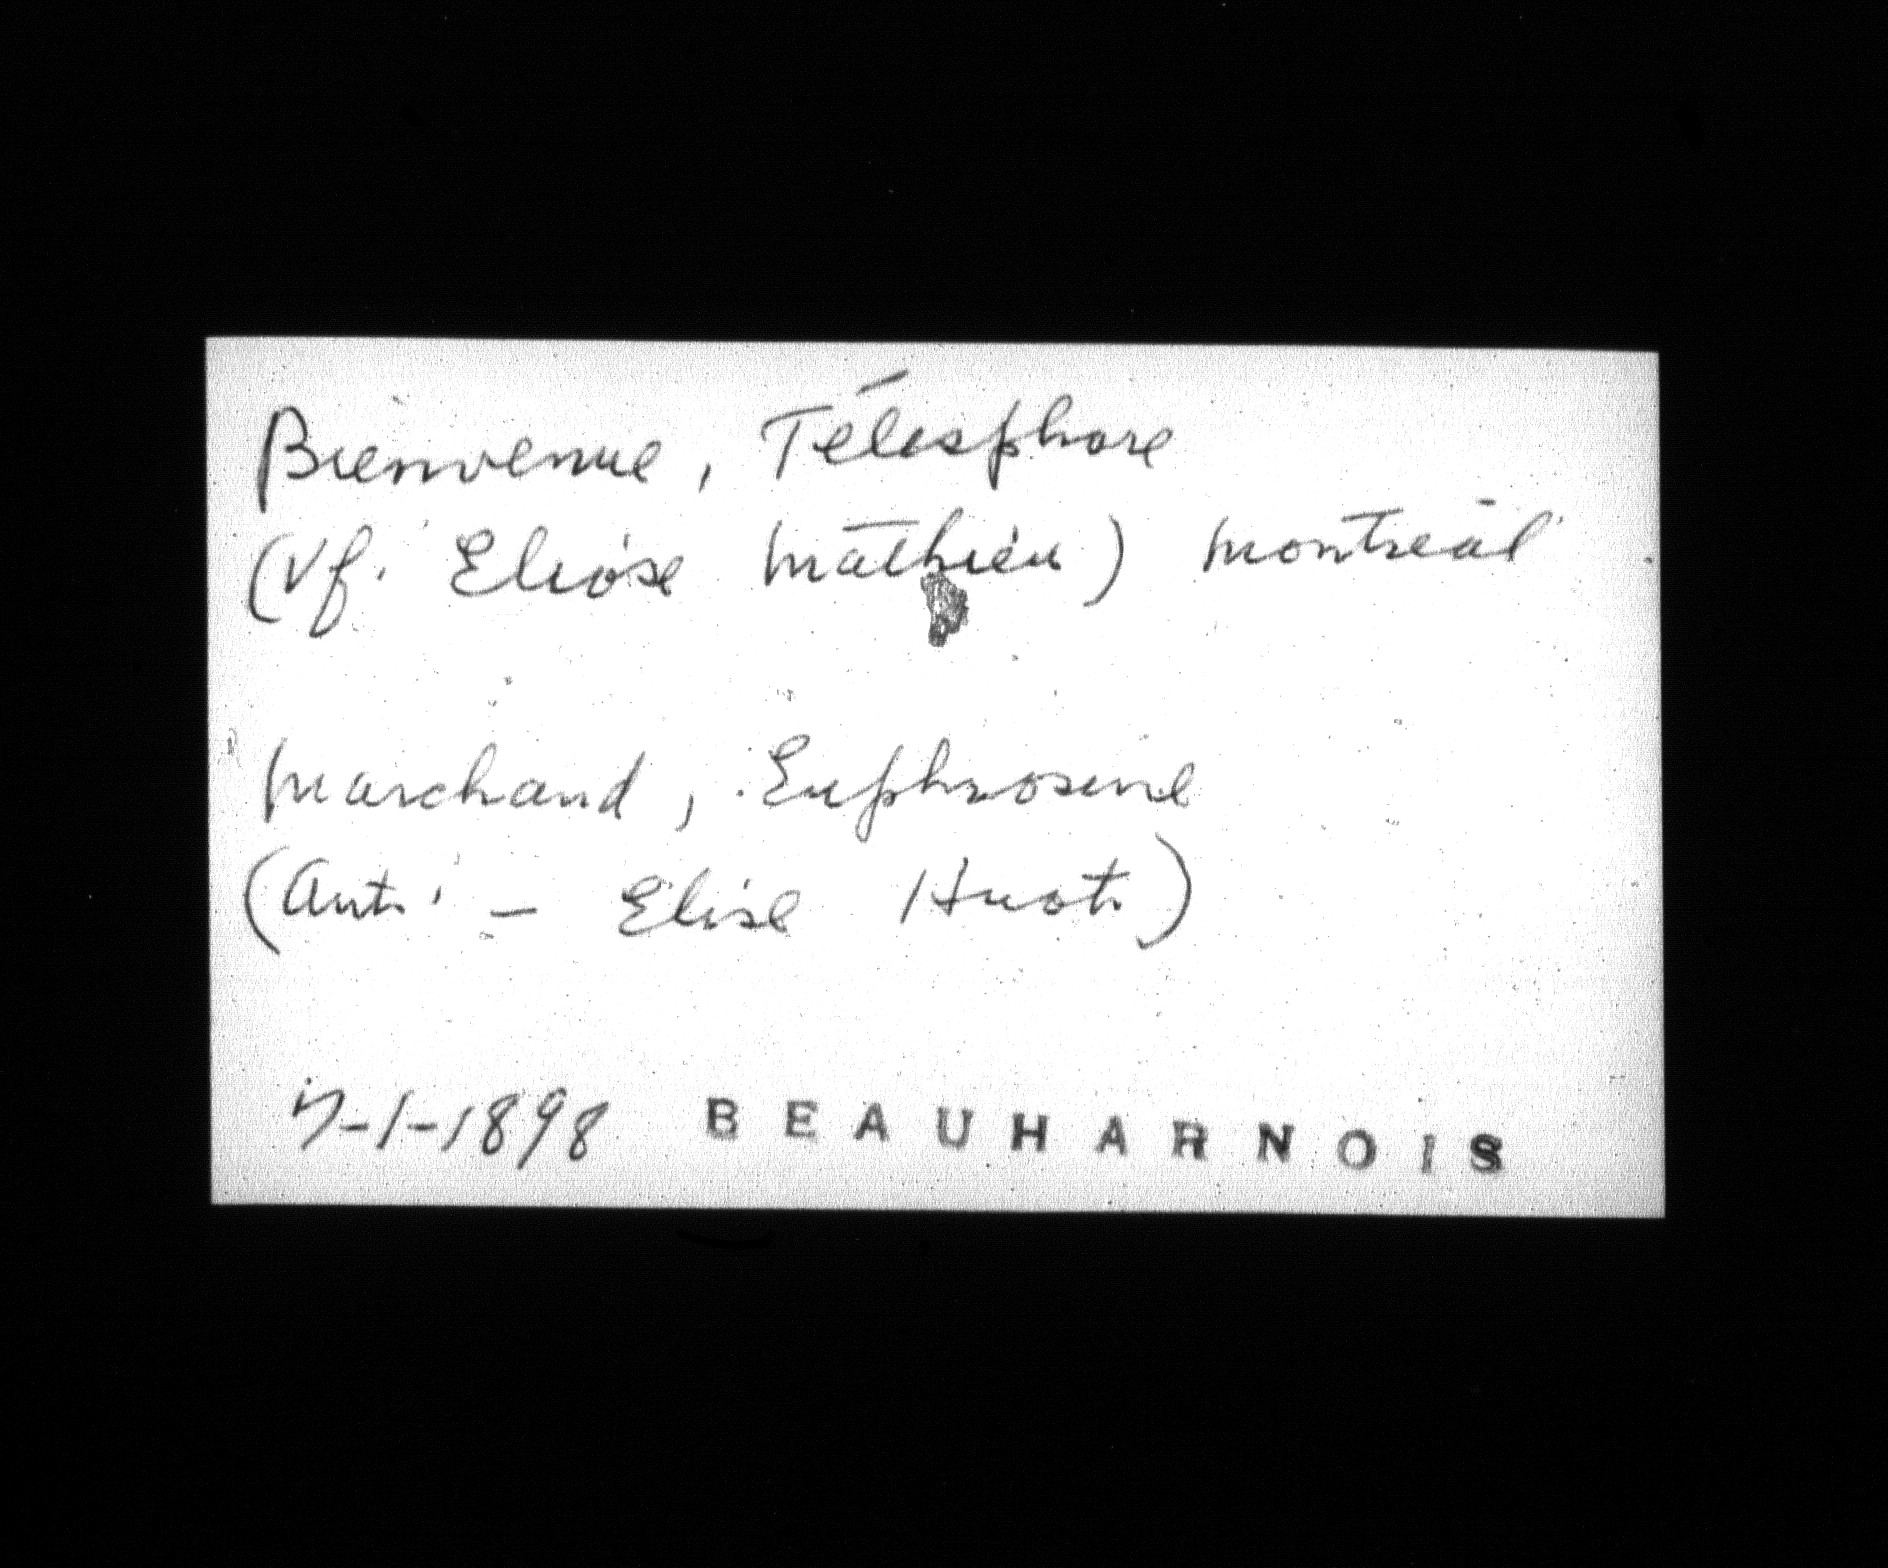 Bienvenue, Télesphore
(Vf. Elióse Mathieu) Montréal
Marchand, Euphrosine
(Ant. - Elise Huot)
7-1-1898 BEAUHARNOIS